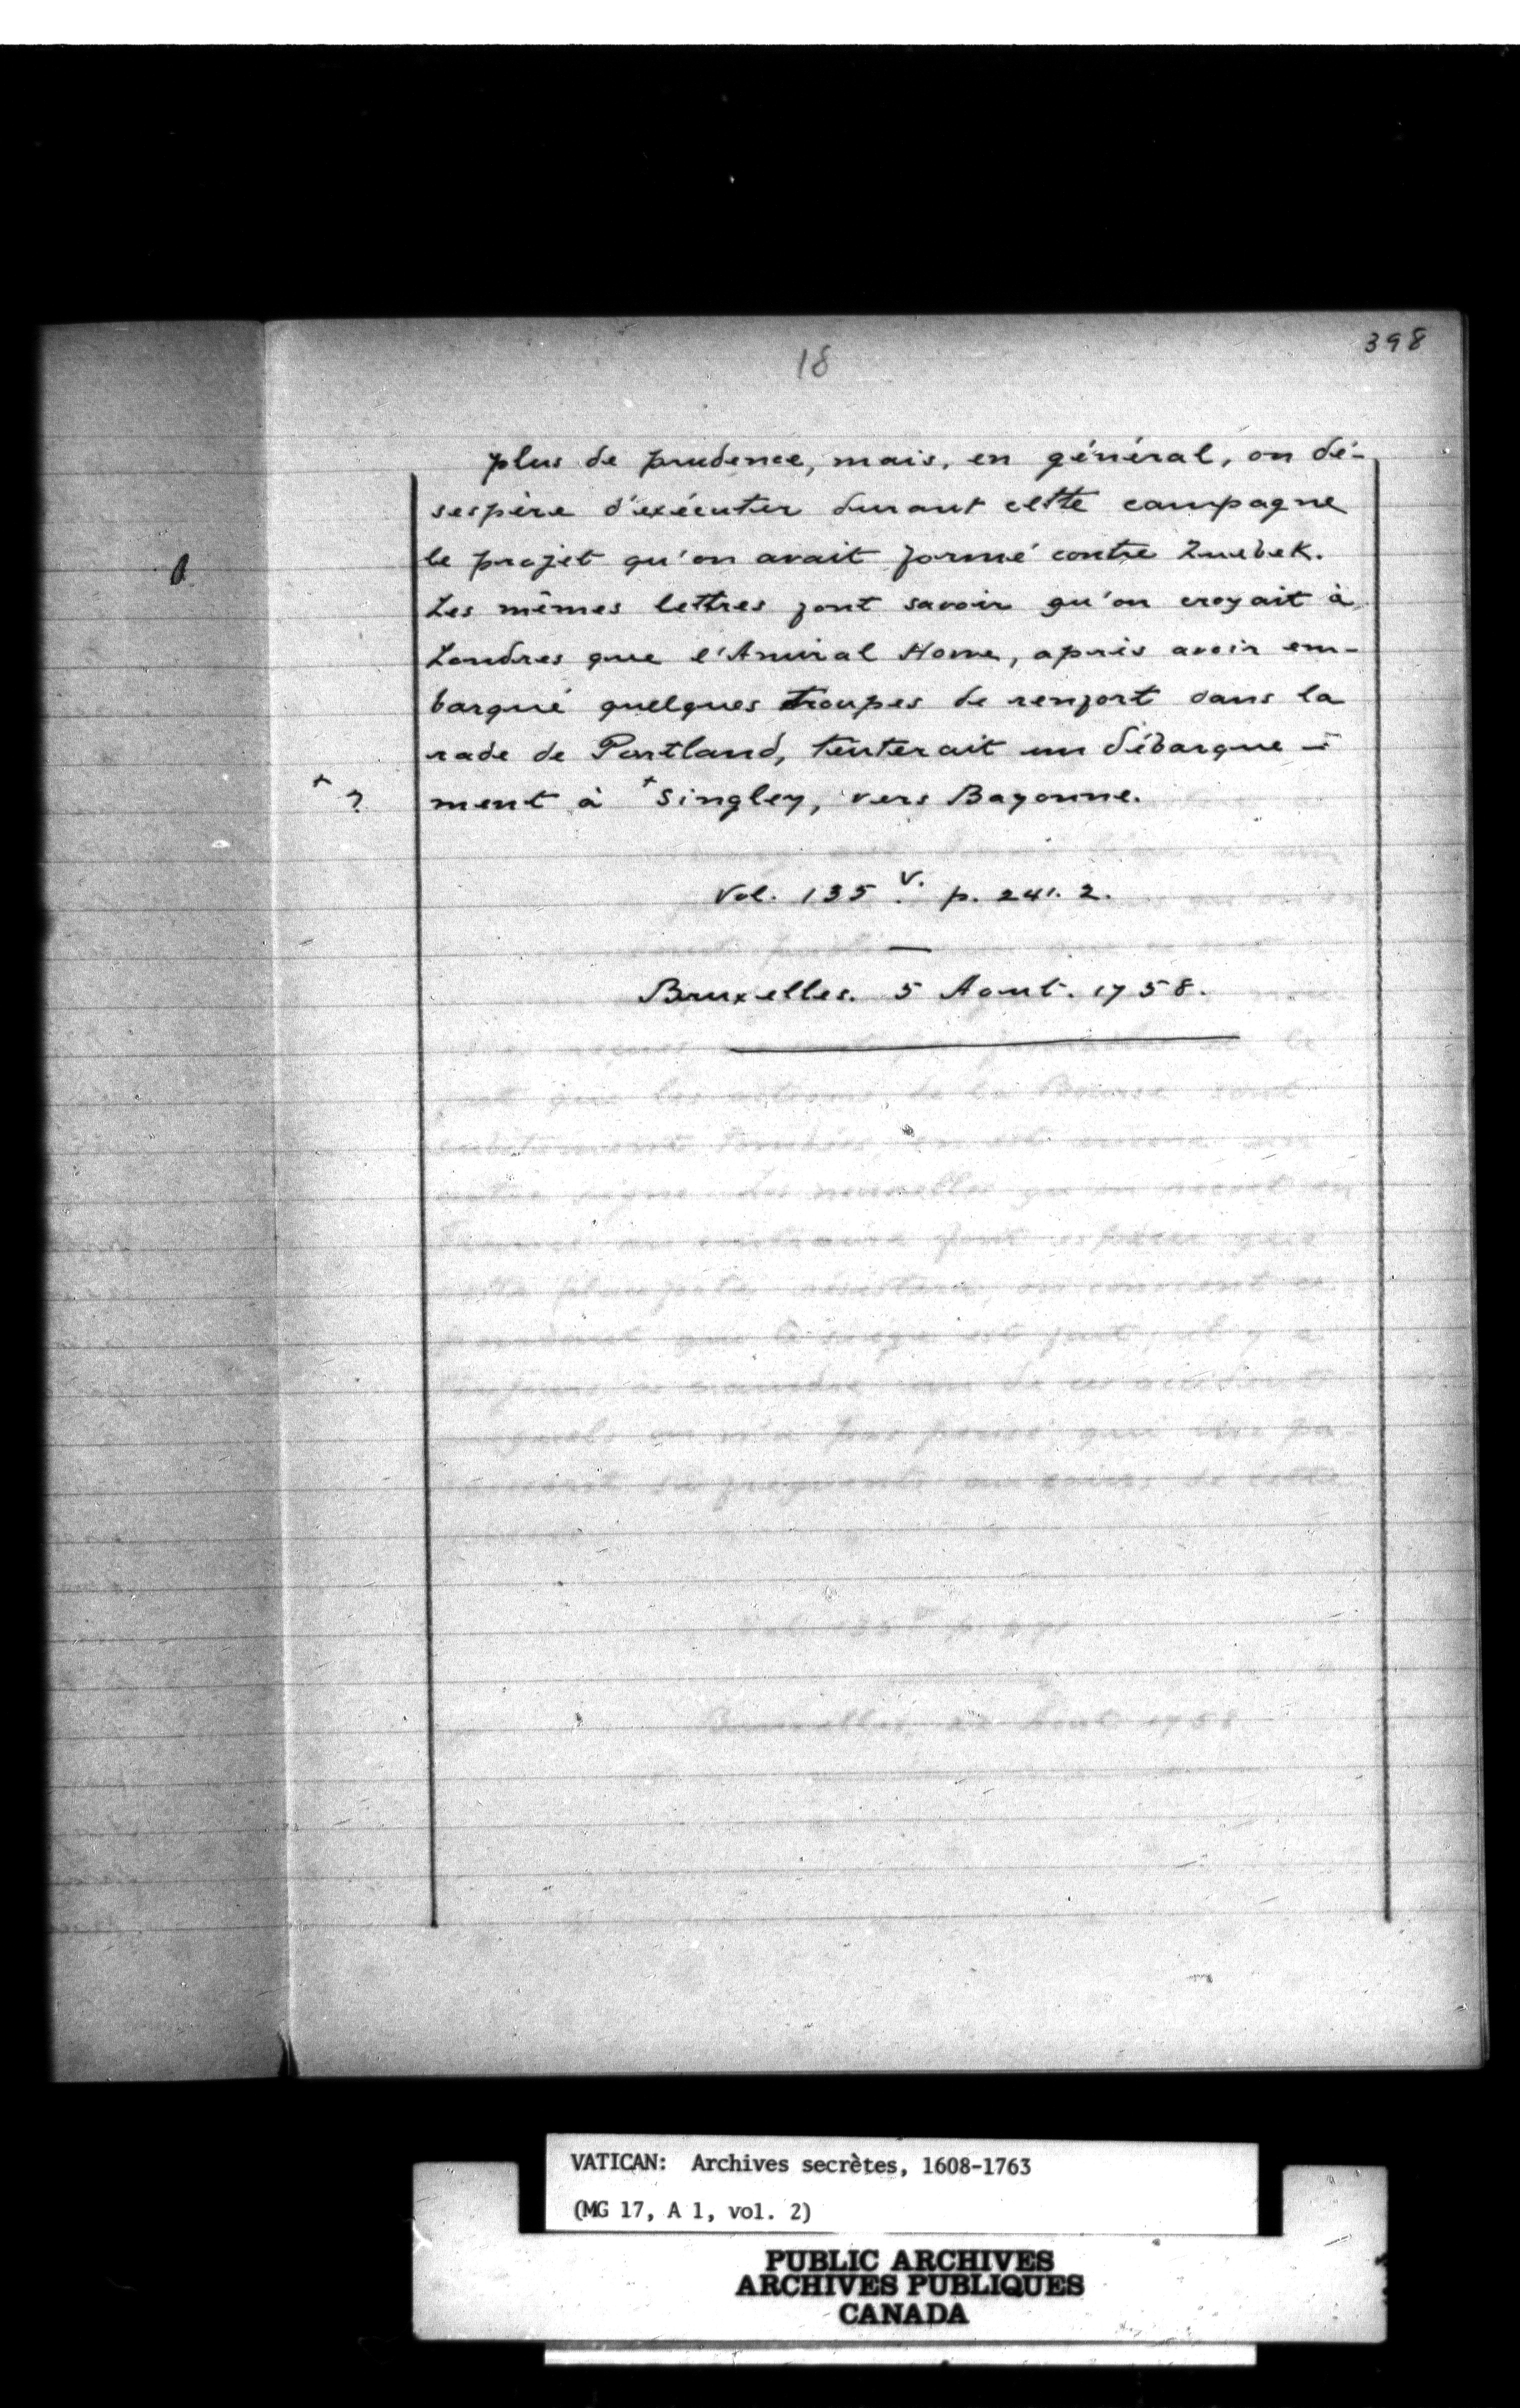 398
18
plus de prudence, mais, en général, on dé-
sespère d'exécuter durant cette campagne
le projet qu'on avait formé contre Quebek.
Les mêmes lettres font savoir qu'on croyait à
Londres que l'Amiral Howe, après avoir em-
barqué quelques troupes de renfort dans la
rade de Portland, tenterait un débarque-
+ ? ment à + Singley, vers Bayonne.
Vol. 135 v. p. 241. 2.
Bruxelles. 5 Aout. 1758.
VATICAN: Archives secrètes, 1608-1763
(MG 17, A 1, vol. 2)
PUBLIC ARCHIVES
ARCHIVES PUBLIQUES
CANADA